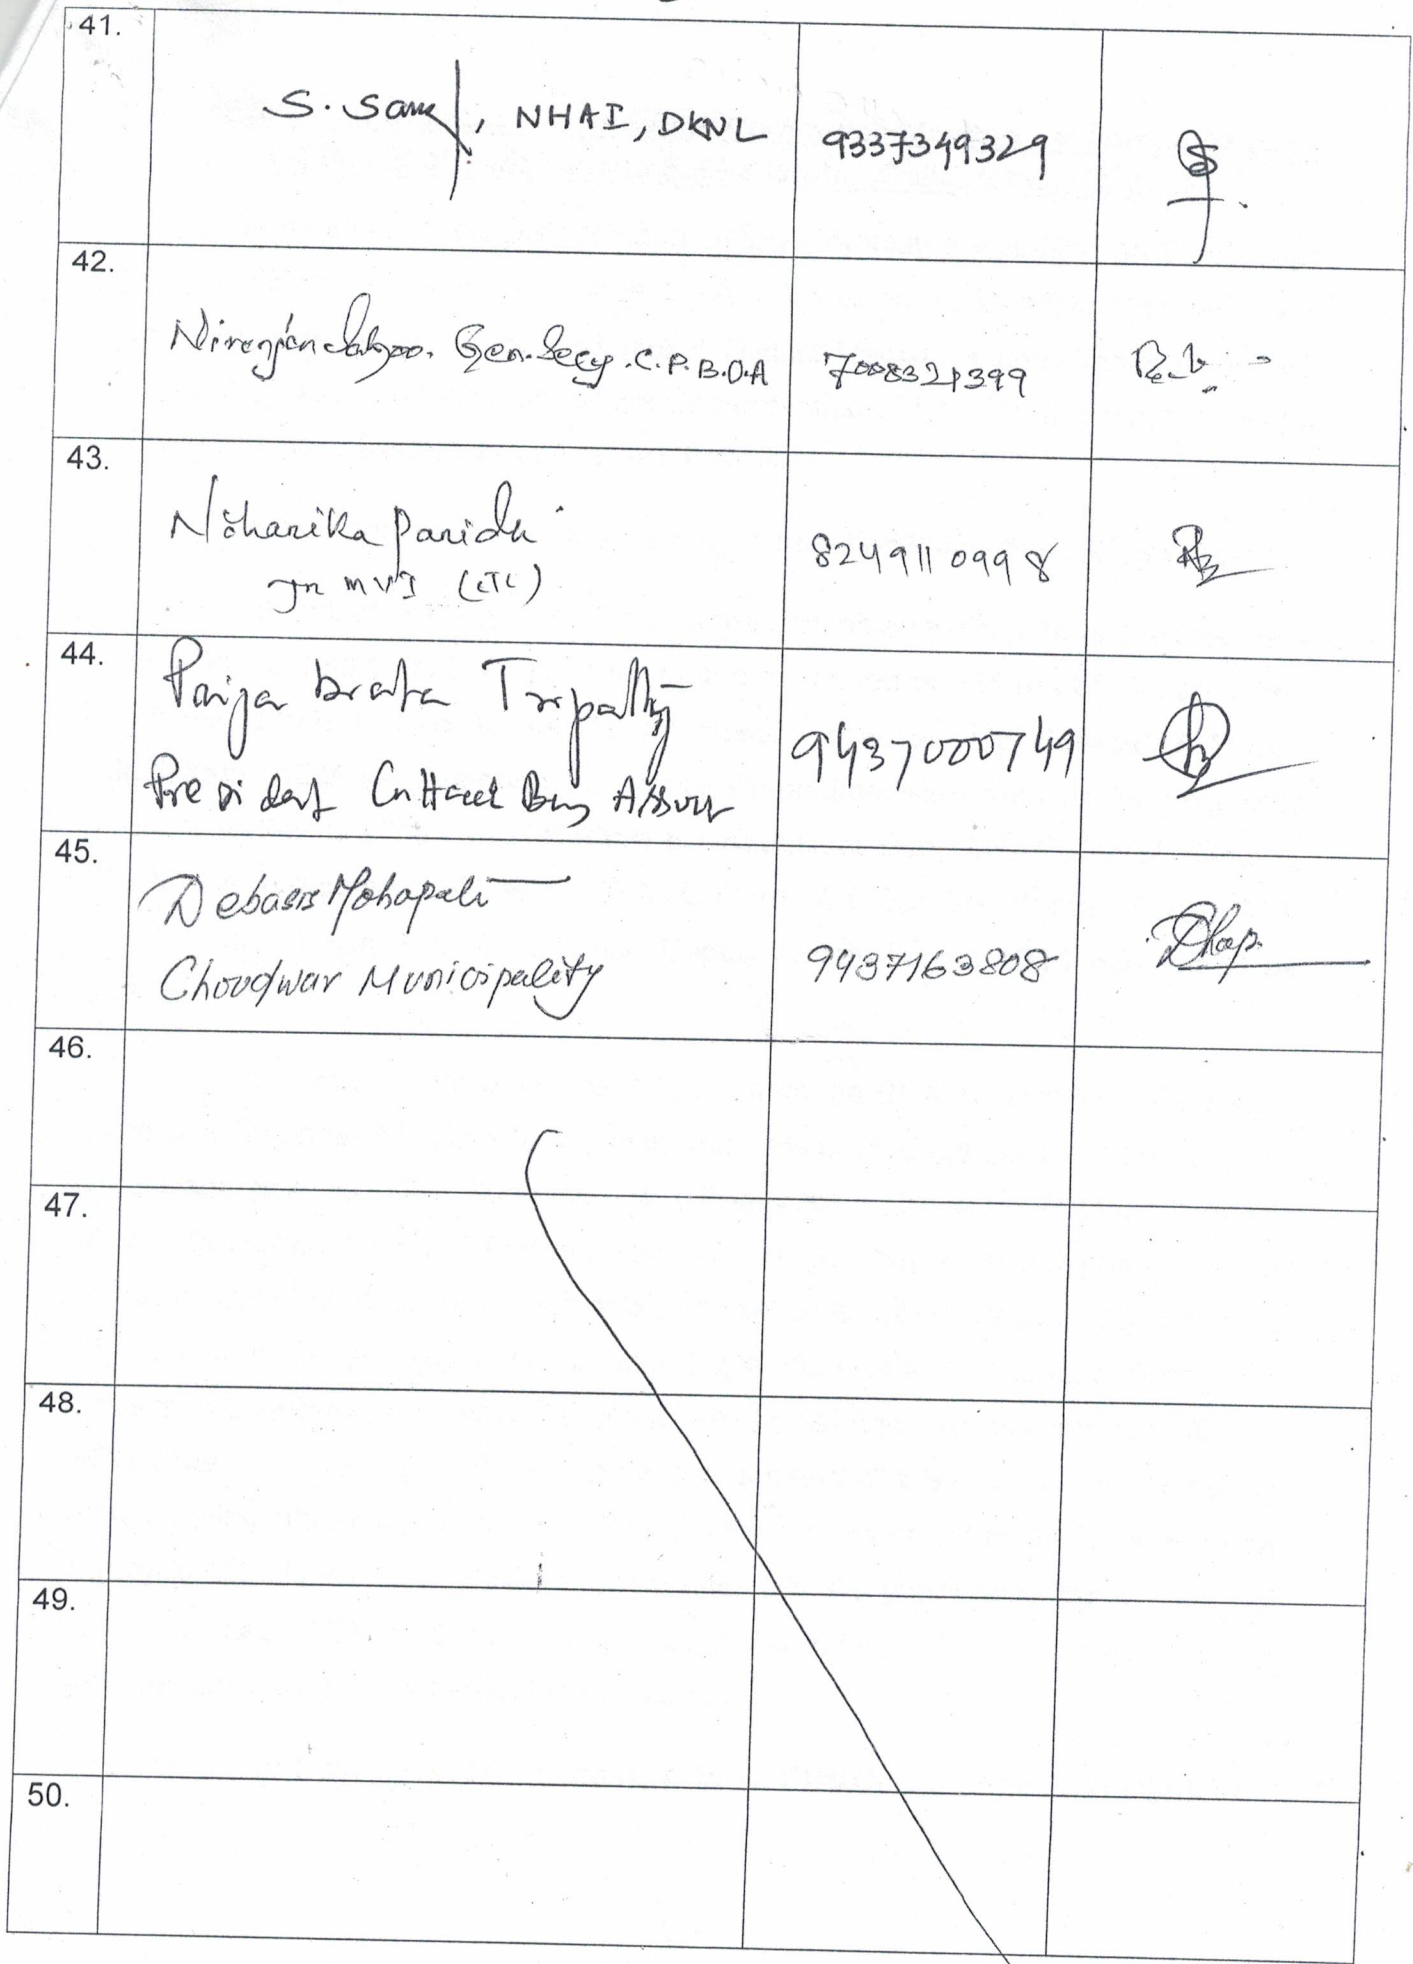 41.
S. , NHAI, DKNL 9337349329
42.
Niranjan Sahoo. Gen. Secy. C.P.B.O.A 7008321399
43.
Niharika Parida
Jn MVI (CTC) 8249110998
44.
brata Tripathy
9437000749
President Cuttack Bus
45.
Debasis Mohapatra
Choudwar Municipality 9437163808
46.
47.
48.
49.
50.